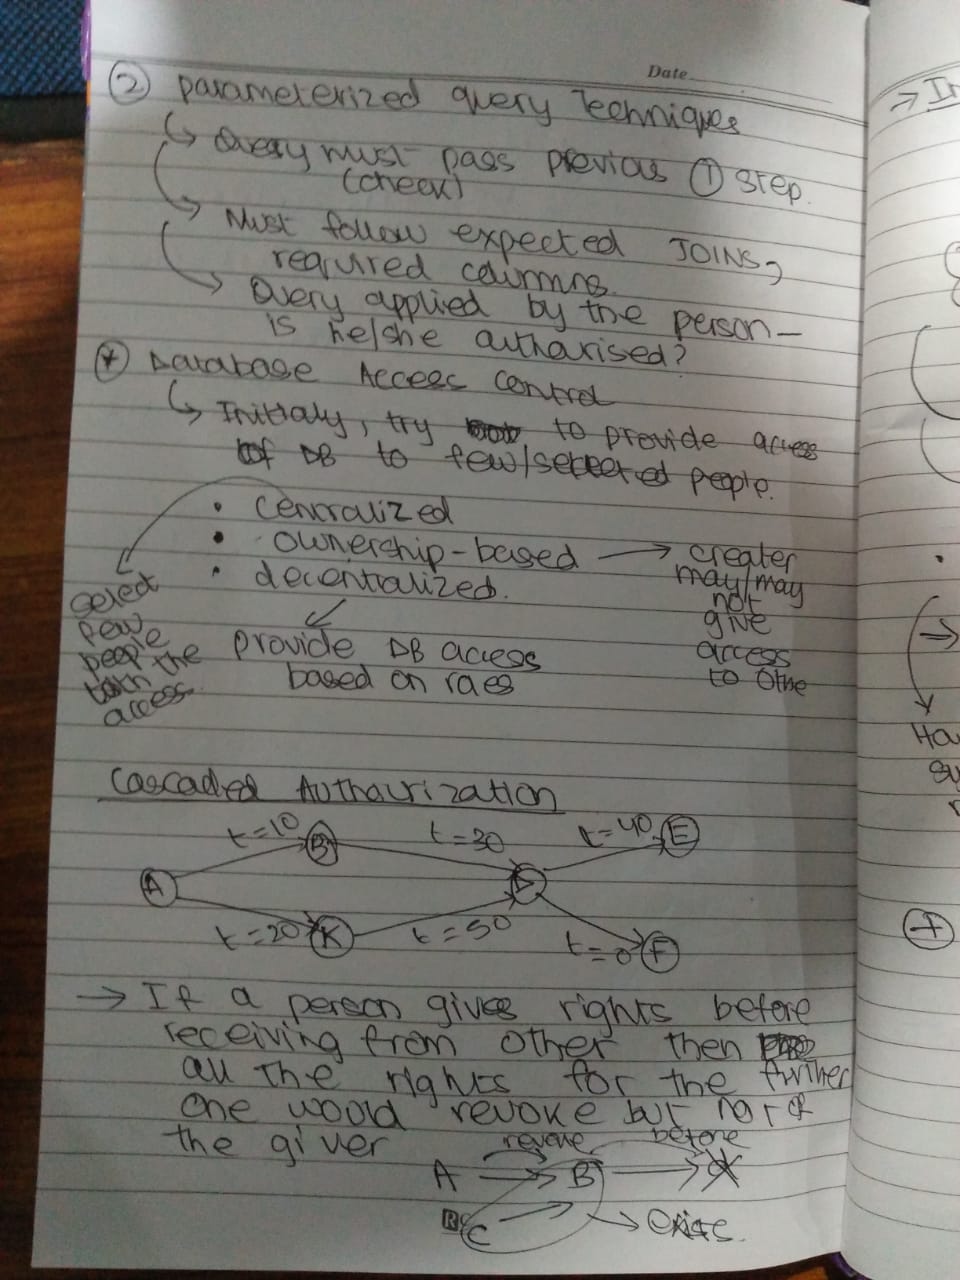 Date
② Parameterized query Techniques
↳ Query must pass previous ① step.
(check)
→ Must follow expected JOINS,
required columns.
→ Query applied by the person –
is he/she autharised?
* Database Access Control
↳ Initialy, try to provide access
of DB to few/selected people.
• Centralized
• ownership-based → creater
may/may
not
give
access
to othe
• decentralized.
select
few
people
the
access.
provide DB access
based on raes
Cascaded Authourization
A B K D E F
t=10 t=30 t=40
t=20 t=50 t=0
→ If a person gives rights before
receiving from other then
all the rights for the further
one would revoke but not of
the giver
revoke before
A → B →
C → exists.
→ In
Ha